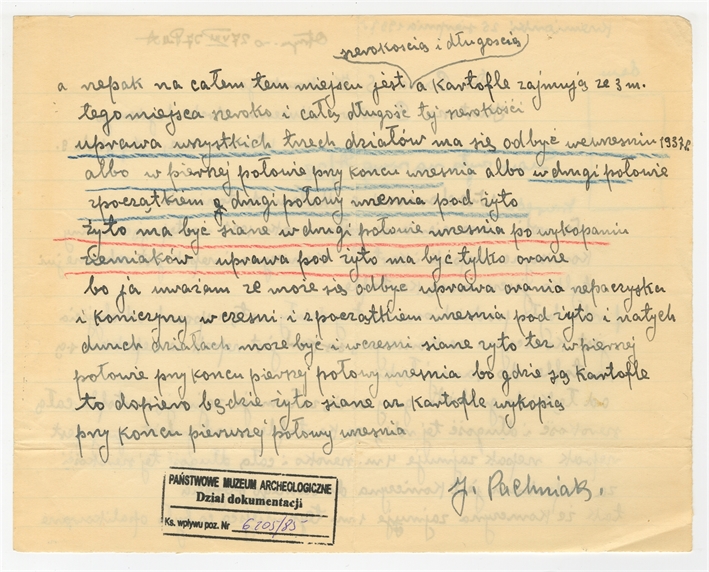 szerokością i długością
a rzepak na całem tem miejscu jest a kartofle zajmują ze 3 m.
tego miejsca szeroko i całą długość tej szerokości
uprawa wszystkich trzech działów ma się odbyć we wrześniu 1937 r.
albo w pierszej połowie przy końcu września albo w drugi połowie
z początkiem drugi połowy września pod żyto
żyto ma być siane w drugi połowie września po wykopaniu
ziemiaków. uprawa pod żyto ma być tylko orane
bo ja uważam że może się odbyć uprawa orania rzepaczyska
i koniczyny wcześni i z początkiem września pod żyto i na tych
dwuch działach może być i wcześni siane żyto też w pierszej
połowie przy końcu pierszej połowy września bo gdzie są kartofle
to dopiero będzie żyto siane aż kartofle wykopią
przy końcu pierwszej połowy września
J. Pachniak.
PAŃSTWOWE MUZEUM ARCHEOLOGICZNE
Dział dokumentacji
Ks. wpływu poz. Nr 6205/85